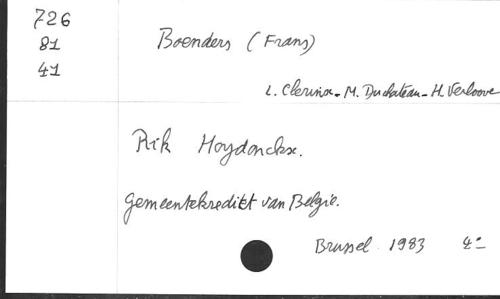 726
81
41
Boenders (Frans)
L. Clerinx - M. Duchateau - H. Verloove
Rik Hoydonckx.
Gemeentekrediet van Belgie.
Brussel 1983 4°